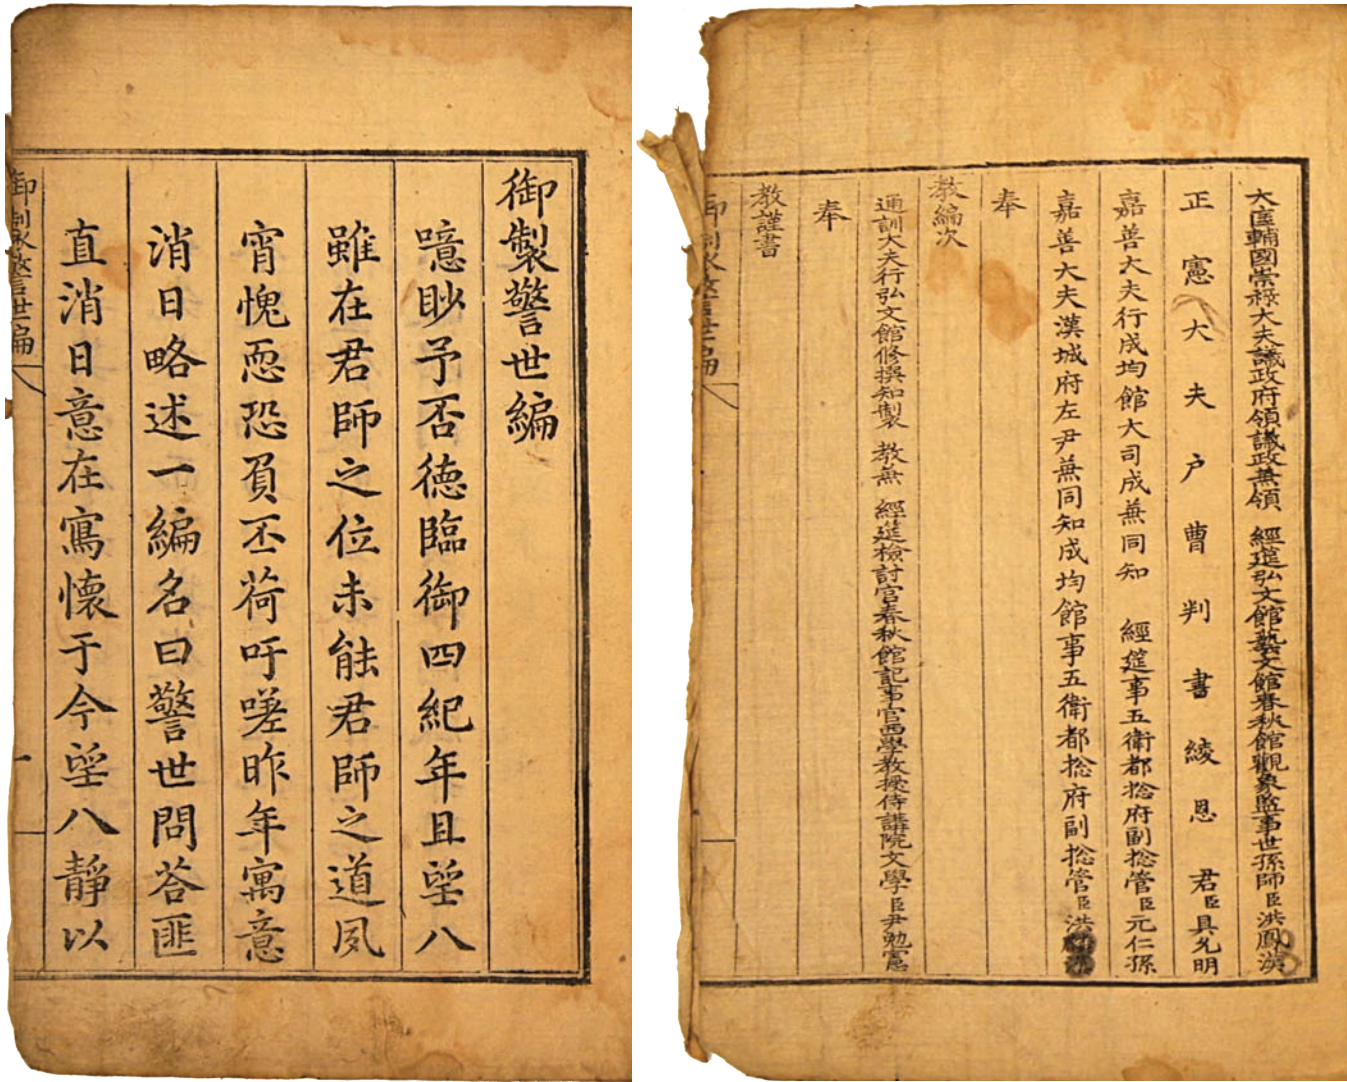 御製警世編
噫眇予否德臨御四紀年且望八
雖在君師之位未能君師之道夙
宵愧恧恐負丕荷吁嗟昨年寓意
消日略述一編名曰警世問答匪
直消日意在寓懷于今望八靜以
御製警世編
一
大匡輔國崇祿大夫議政府領議政兼領 經筵弘文館藝文館春秋館觀象監事世孫師臣洪鳳漢
正憲大夫戶曹判書綾恩君臣具允明
嘉善大夫行成均館大司成兼同知 經筵事五衛都捴府副捴管臣元仁孫
嘉善大夫漢城府左尹兼同知成均館事五衛都捴府副捴管臣洪
奉
教編次
通訓大夫行弘文館修撰知製 教兼 經筵檢討官春秋館記事官西學教授侍講院文學臣尹勉憲
奉
教謹書
御製警世編